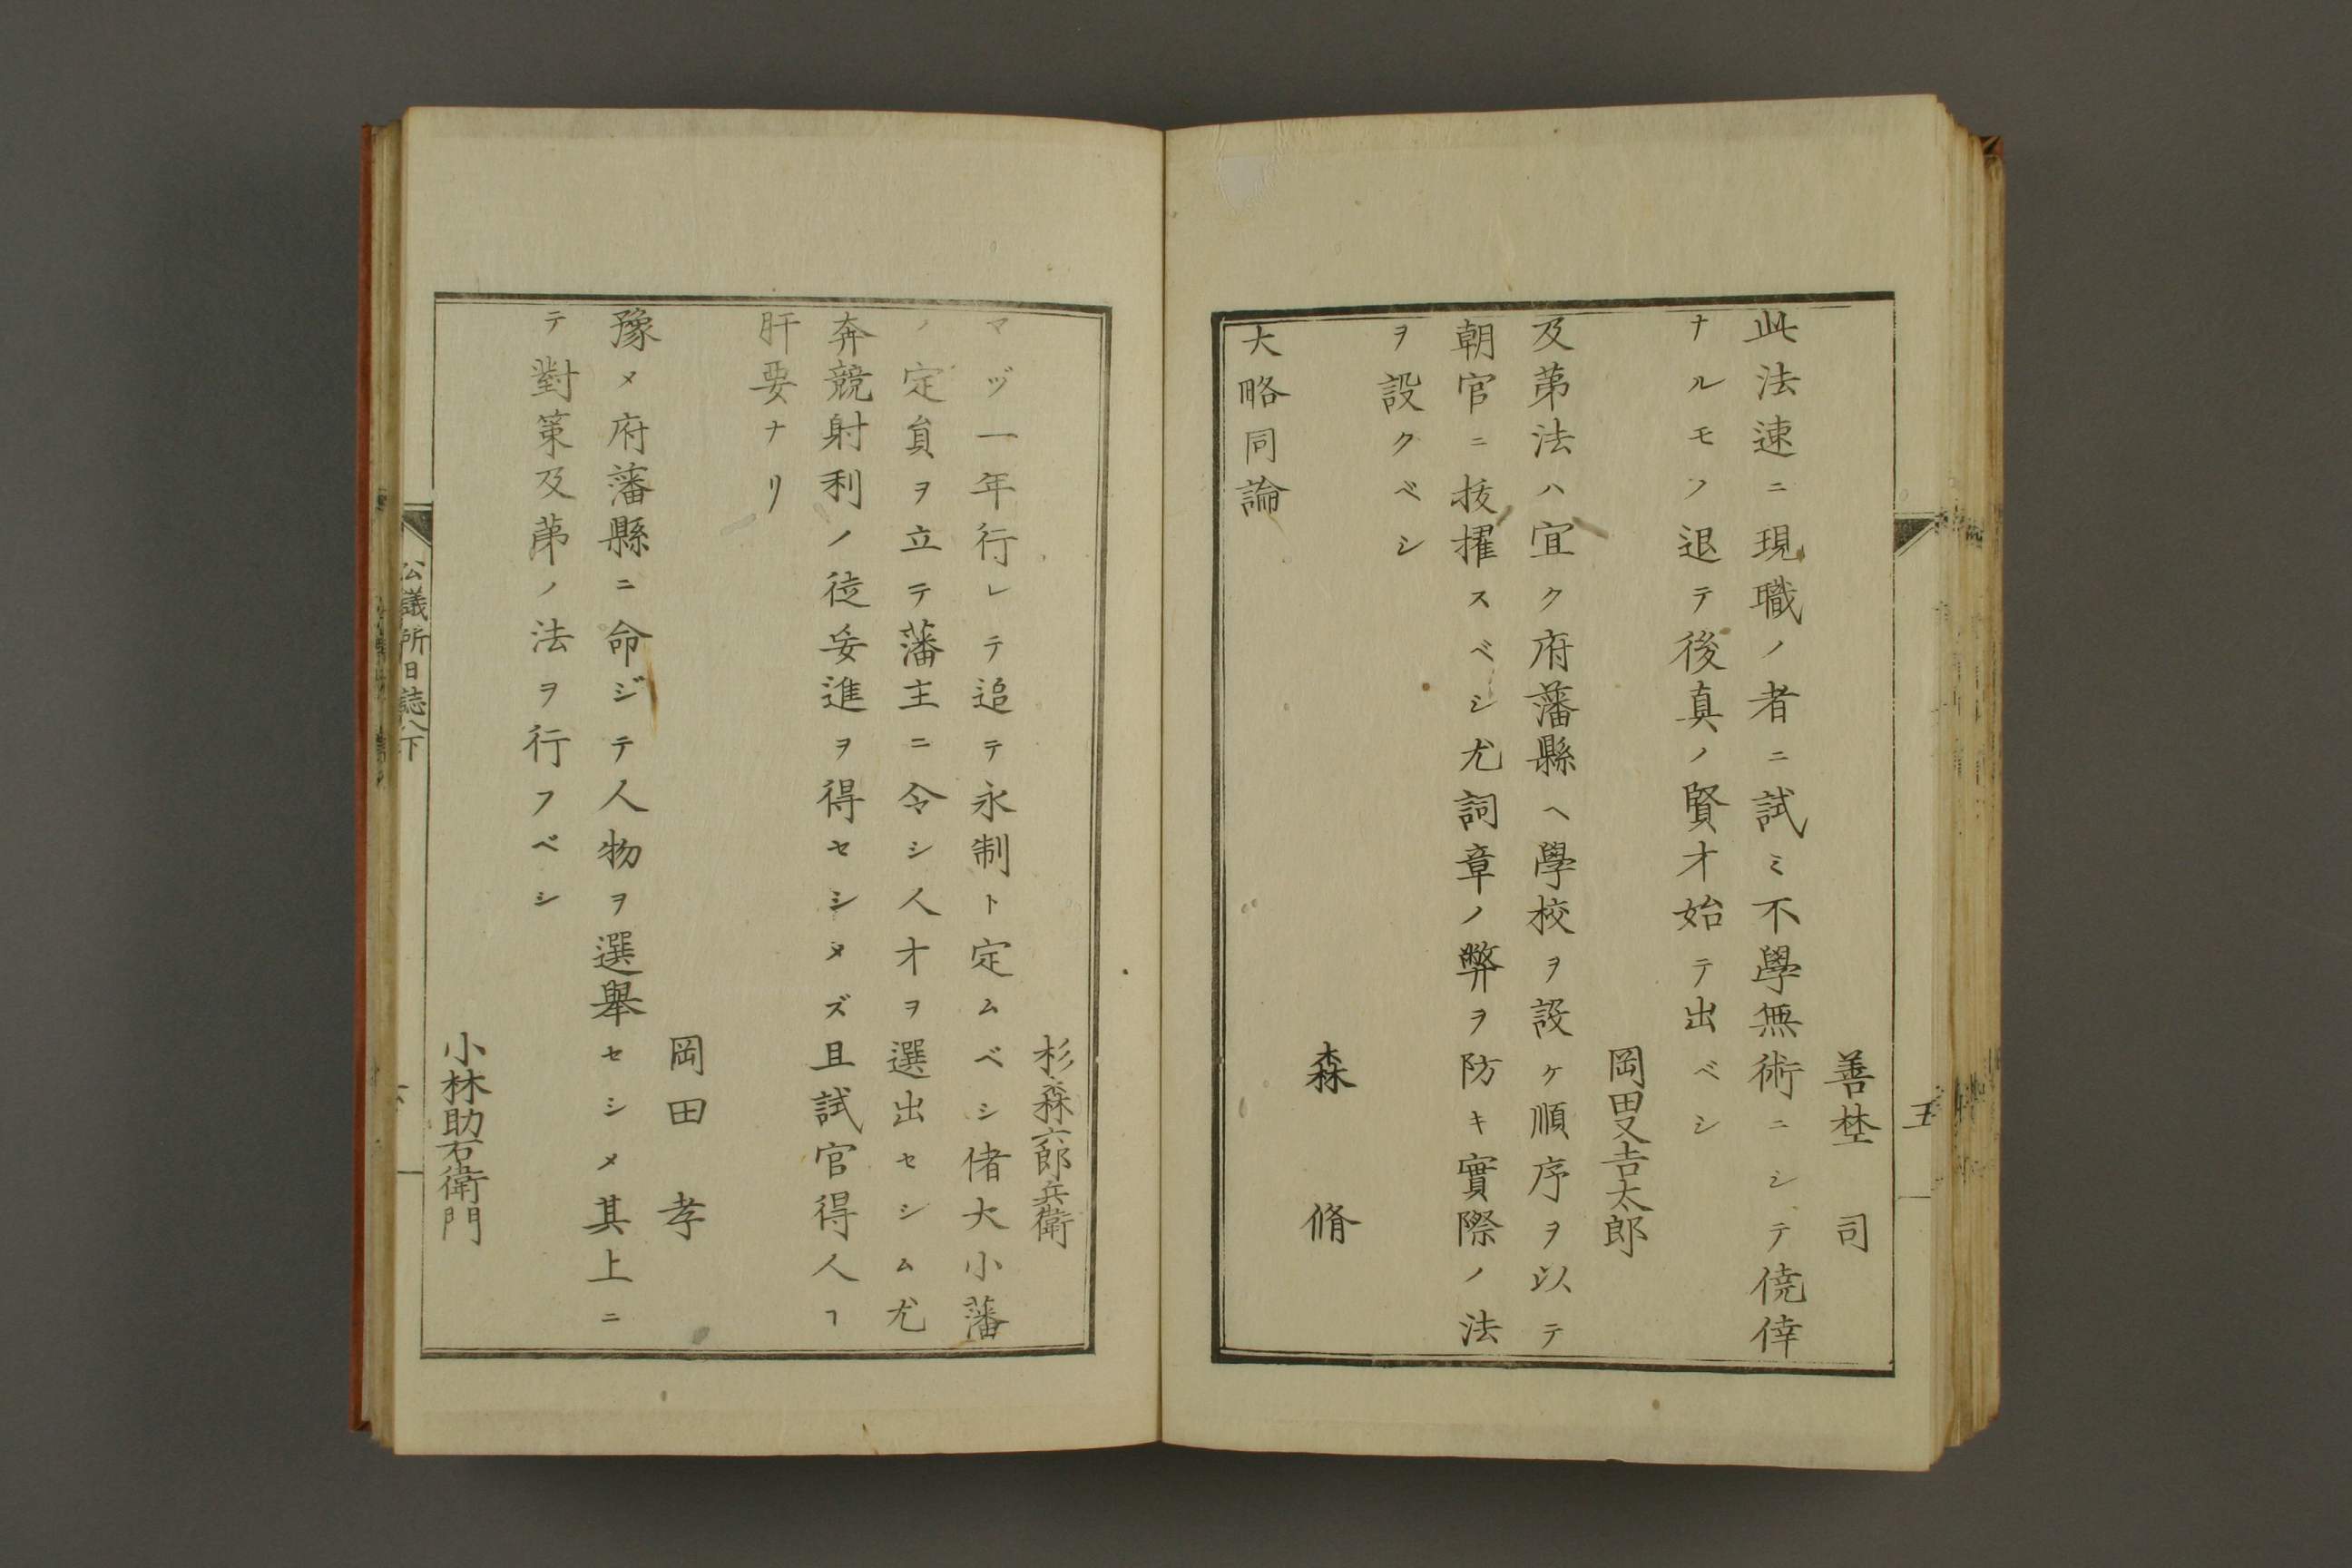 善埜　司
此法速ニ現職ノ者ニ試ミ不學無術ニシテ僥倖
ナルモノ退テ後真ノ賢才始テ出ベシ
岡田又吉太郎
及第法ハ宜ク府藩縣ヘ學校ヲ設ケ順序ヲ以テ
朝官ニ抜擢スベシ尤詞章ノ弊ヲ防キ實際ノ法
ヲ設クベシ
森　脩
大略同論
五
杉森六郎兵衛
マヅ一年行レテ追テ永制ト定ムベシ偖大小藩
ノ定員ヲ立テ藩主ニ令シ人才ヲ選出セシム尤
奔競射利ノ徒妄進ヲ得セシメズ且試官得人ヿ
肝要ナリ
岡田　孝
豫メ府藩縣ニ命ジテ人物ヲ選舉セシメ其上ニ
テ對策及第ノ法ヲ行フベシ
小林助右衛門
公議所日誌八下